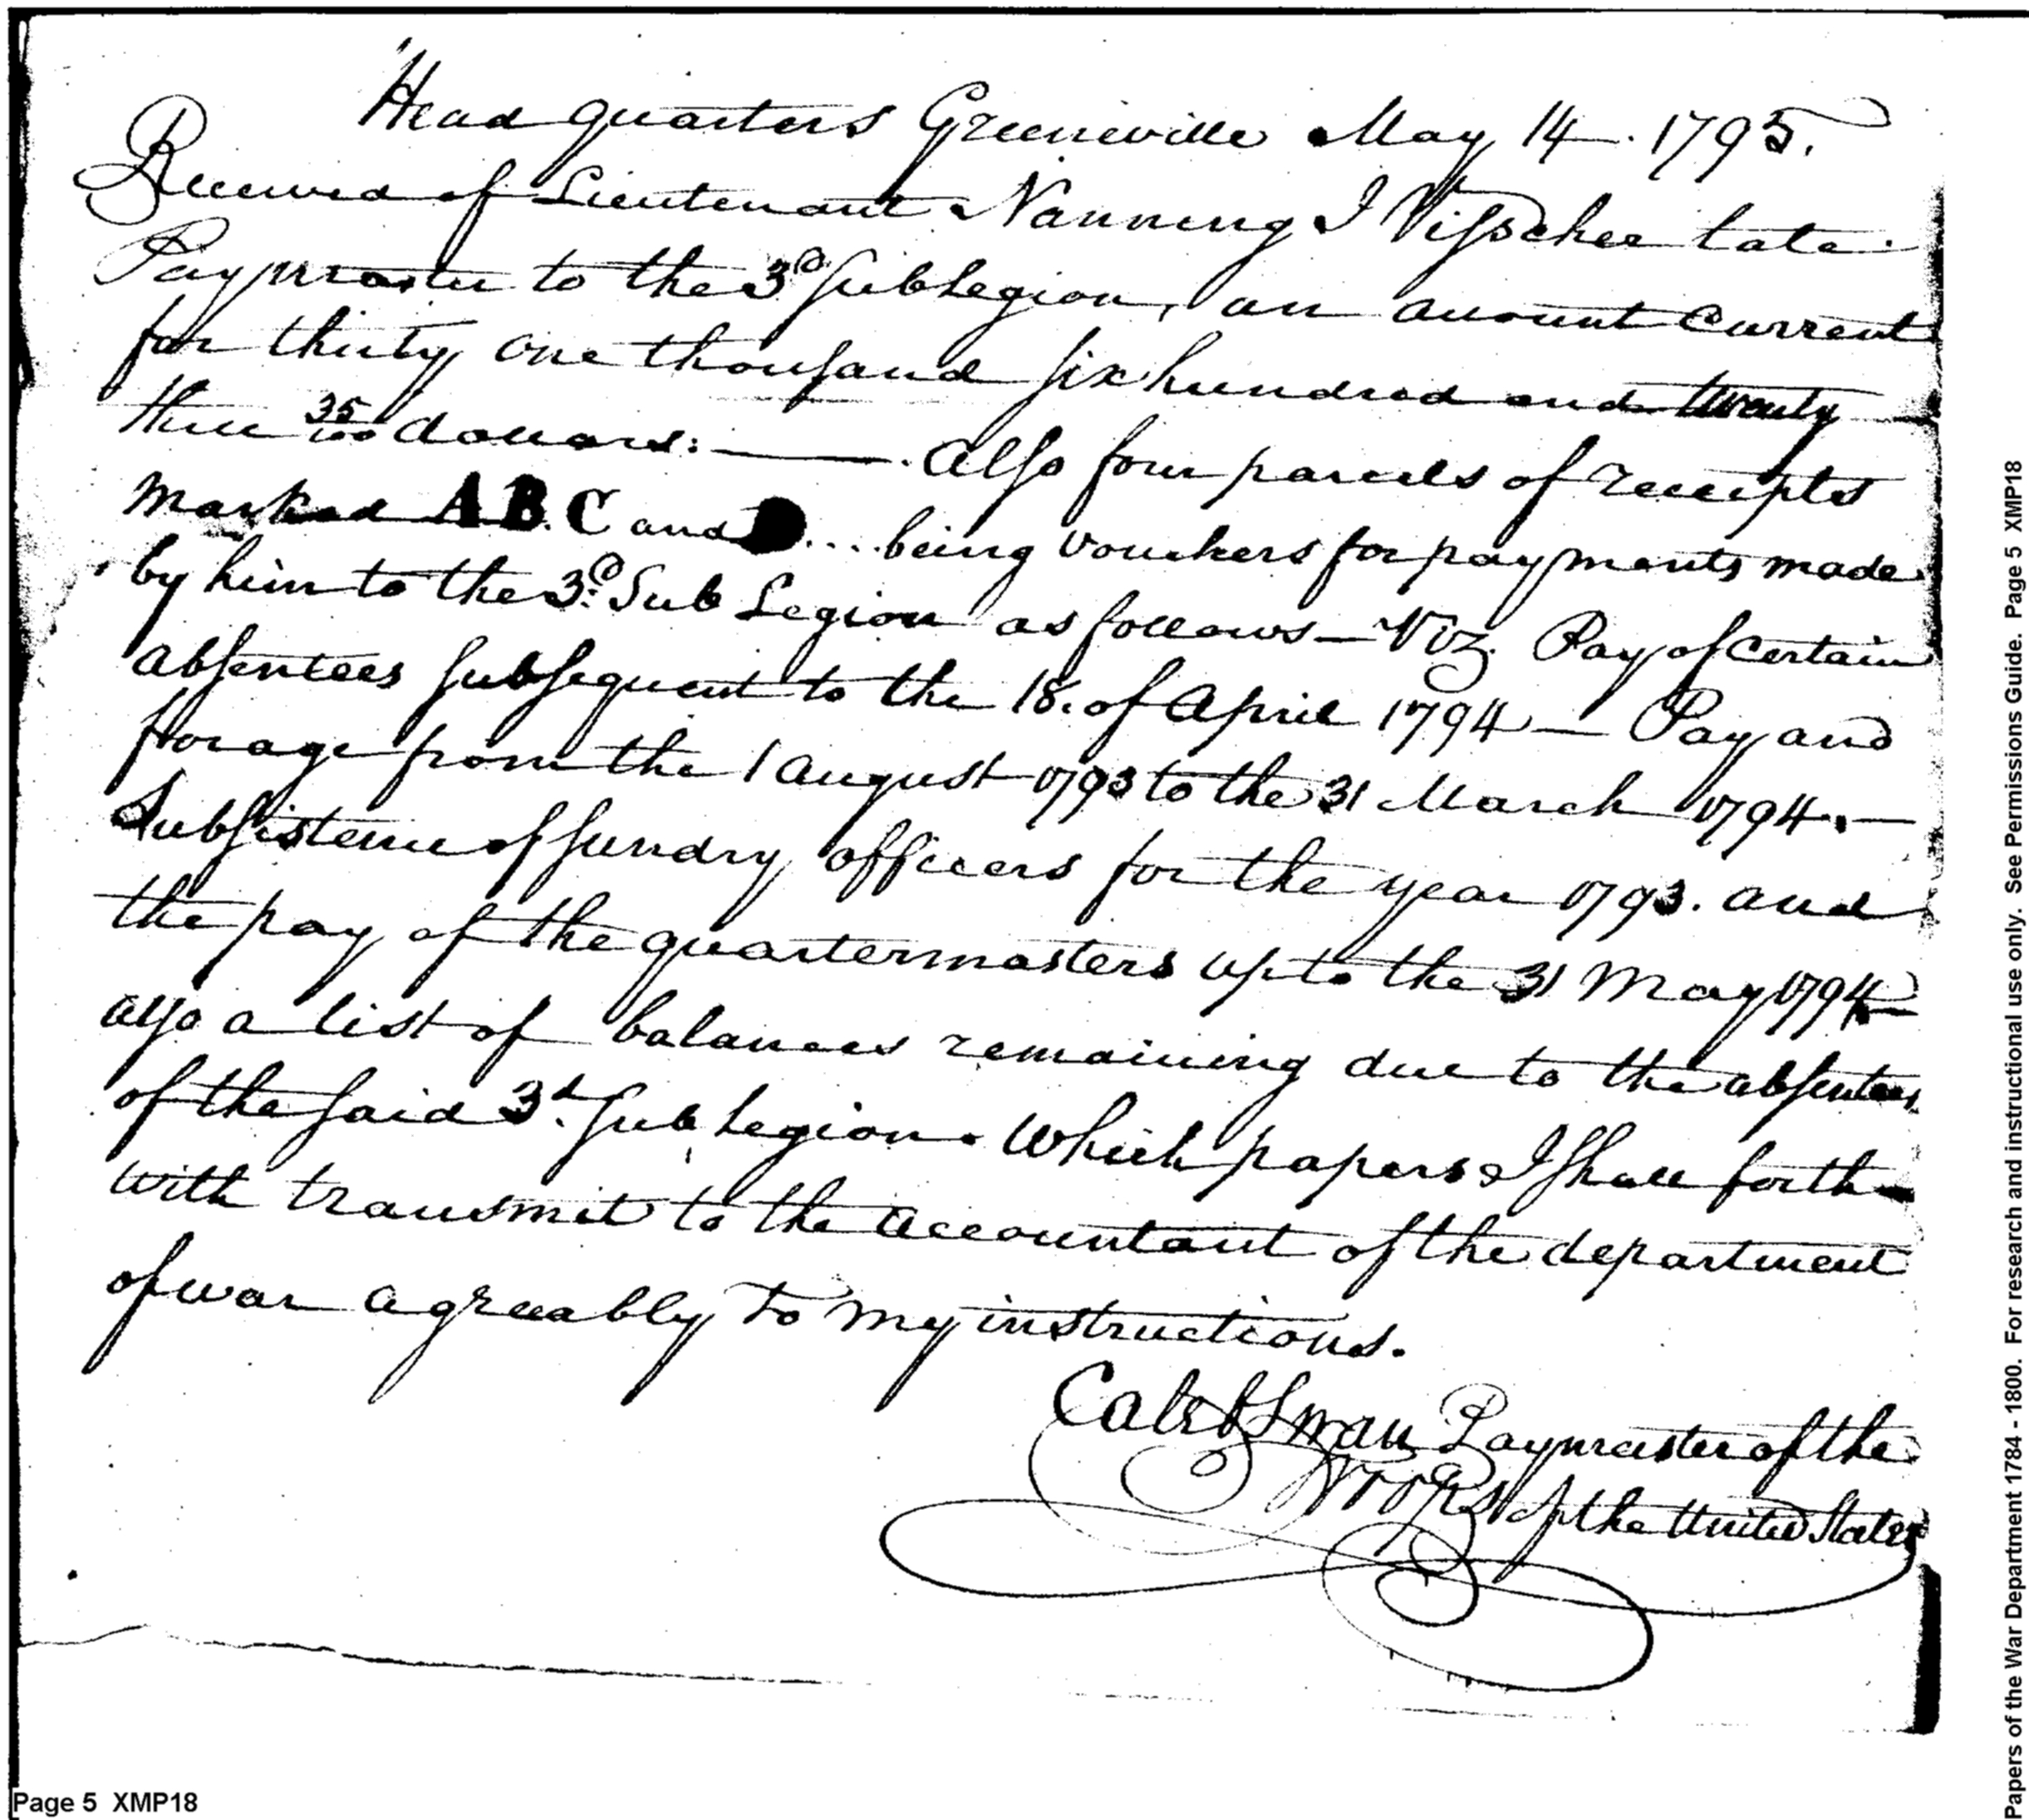 Head quarters Greeneville May 14. 1795.
Received of Lieutenant Nanning I Visscher late
Paymaster to the 3d Sub Legion, an account Current
for thirty one thousand six hundred and twenty
three 35/100 dollars: ——. Also four parcels of receipts
marked A B. C and D .... being vouchers for payments made
by him to the 3d. Sub Legion as follows — Viz. Pay of Certain
absentees subsequent to the 18. of April 1794 — Pay and
forage from the 1 August 1793 to the 31 March 1794. —
Subsistence of sundry officers for the year 1793. and
the pay of the quartermasters up to the 31 May 1794 —
also a list of balances remaining due to the absentees
of the said 3d. Sub Legion. Which papers I shall forth-
with transmit to the accountant of the department
of war agreeably to my instructions.
Caleb Swan Paymaster of the
Troops of the United States
Page 5 XMP18
Papers of the War Department 1784 - 1800. For research and instructional use only. See Permissions Guide. Page 5 XMP18